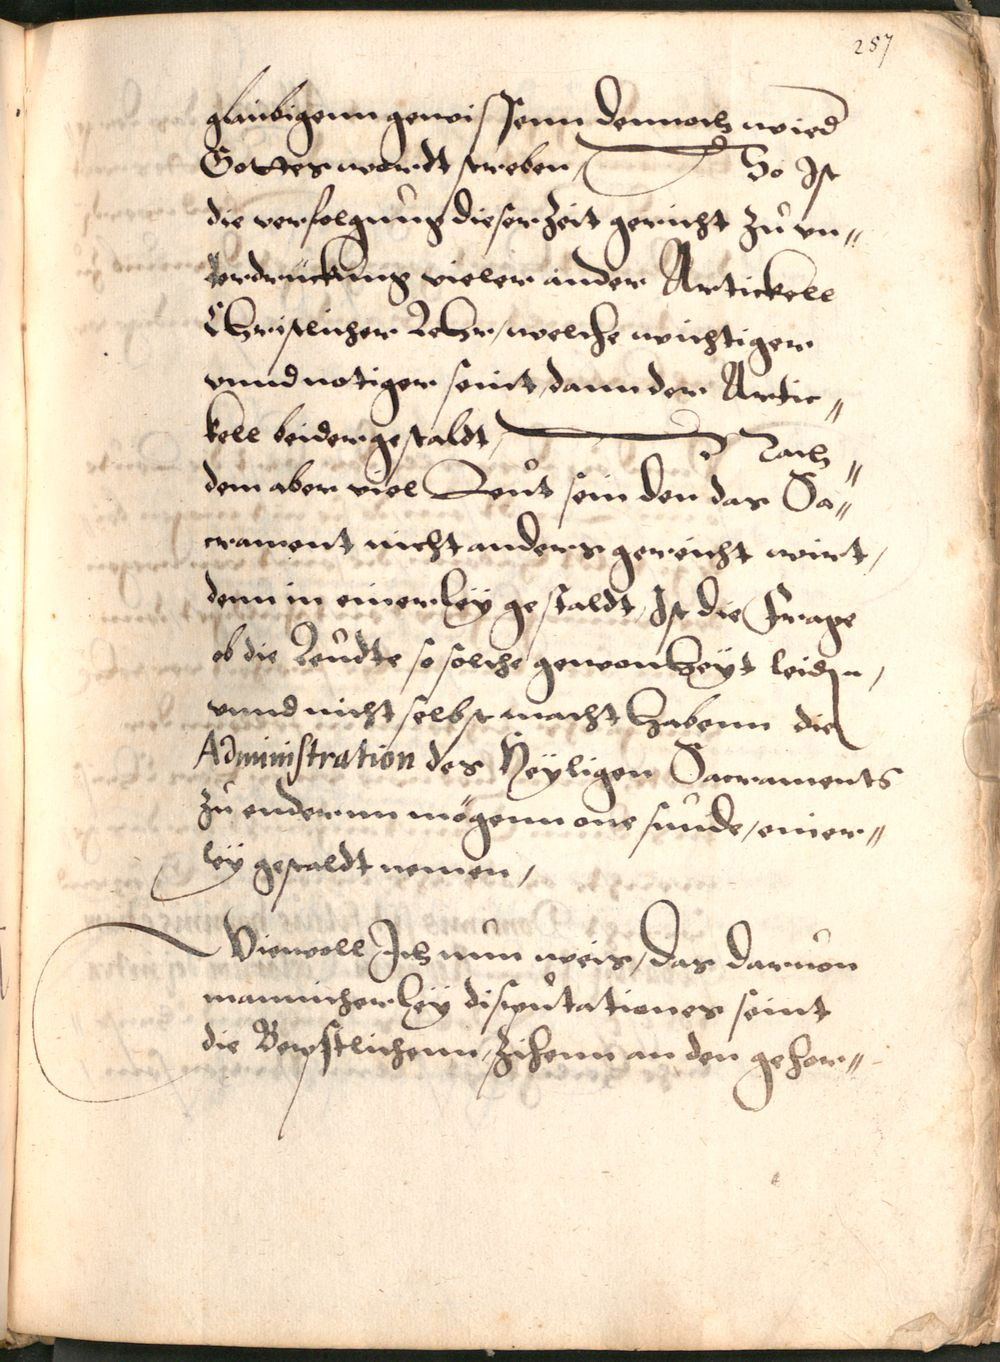 257
glaubigenn gewissenn dennoch wied
Gottes wordt streben / So Ist
die verfolgung dieser Zeit gericht zu vn⸗
derdruckung vieler ander Artickell
Christlicher Lehr / welche wichtiger
vnnd notiger seint / dann der Artic⸗
kell beider gestaldt / Nach⸗
dem aber viel Leut sein den das Sa⸗
crament nicht anders gereicht wirt /
denn in einerley gestaldt / Ist die Frage
ob die Leudte so solche gewonheyt leiden /
vnnd nicht selbst macht habenn die
Administration des Heyligen Sacraments
zu endernn mögenn one sunde / einer⸗
ley gestaldt nemen /
Wiewoll Ich nun weis / das daruon
mannicherley disputationes seint
die Bepstlichenn / Zihenn an den gehor⸗